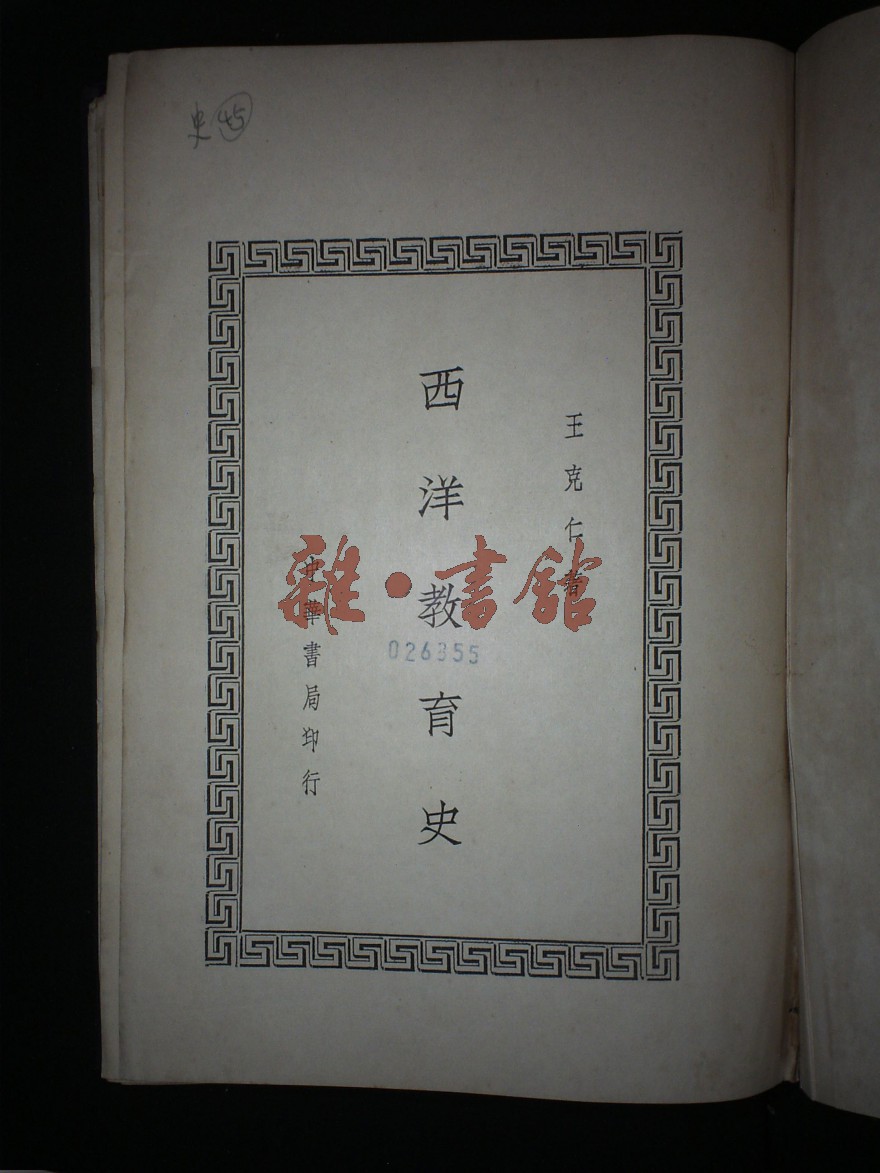 史 45
王克仁著
西洋教育史
中華書局印行
雜·書館
026355